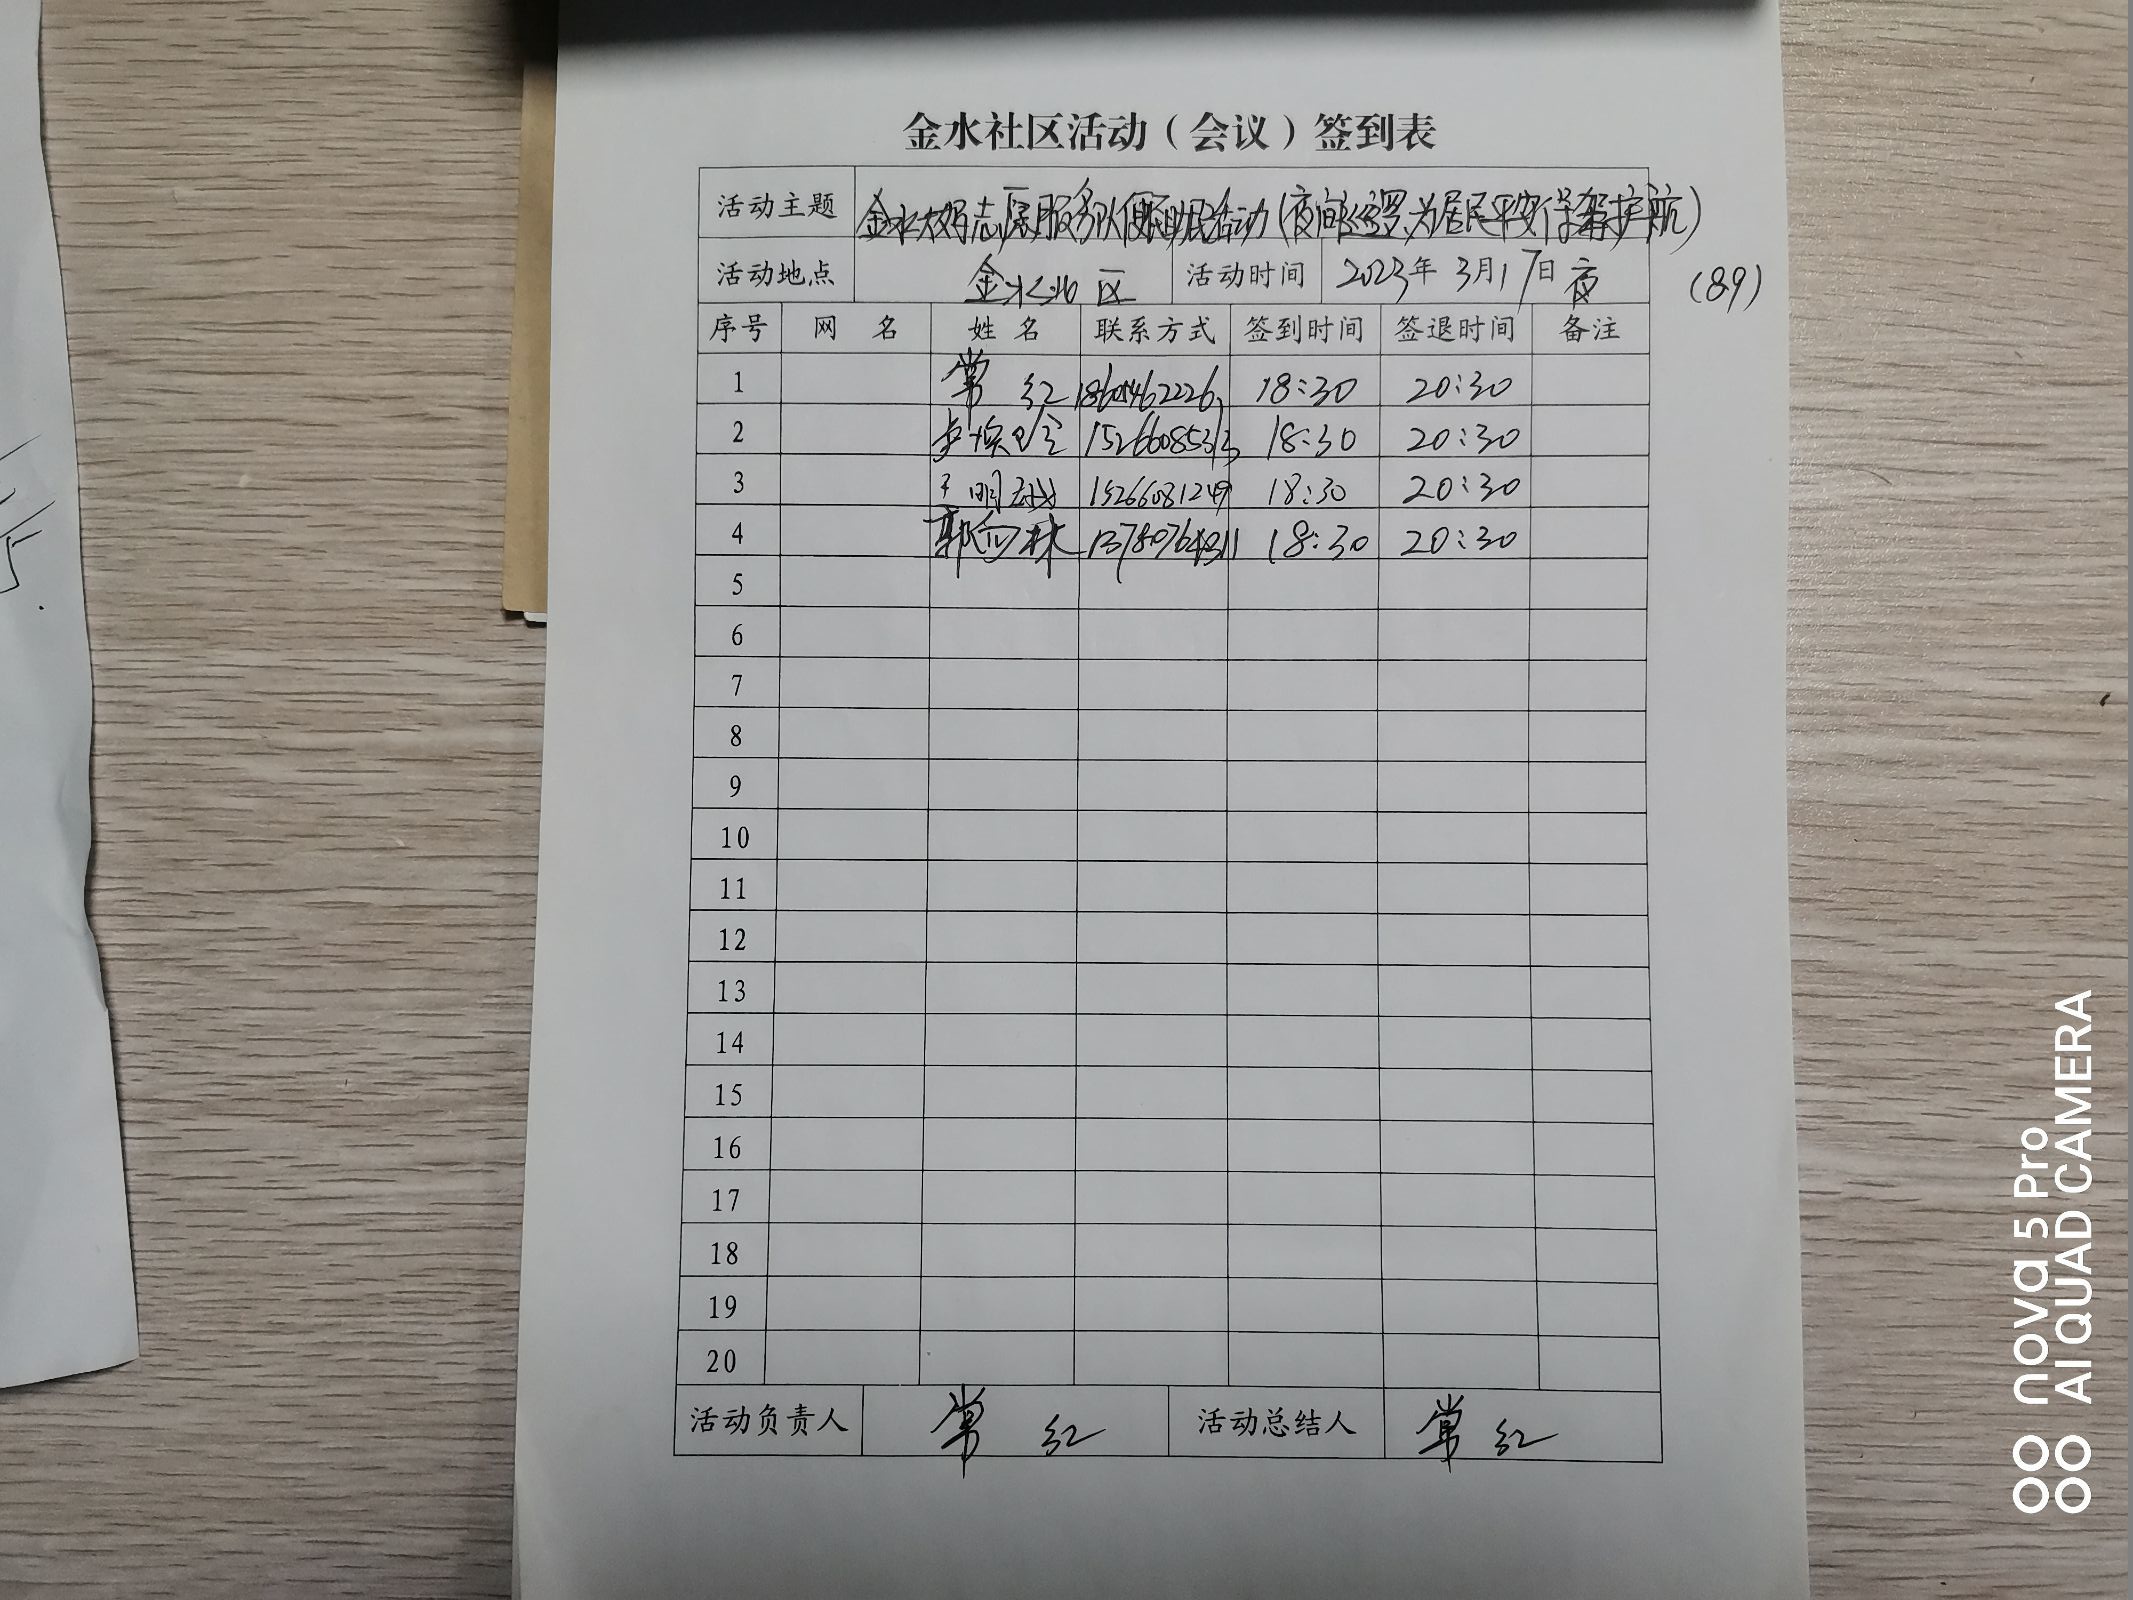 金水社区活动（会议）签到表
活动主题 金水大好志愿服务队便民助民活动(夜间巡逻,为居民平安保驾护航)
活动地点 金水北区 活动时间 2023年3月17日夜 (89)
序号 网 名 姓 名 联系方式 签到时间 签退时间 备注
1 常红 18:30 20:30
2 15266085313 18:30 20:30
3 15266081249 18:30 20:30
4 郭向林 18:30 20:30
5
6
7
8
9
10
11
12
13
14
15
16
17
18
19
20
活动负责人 常红 活动总结人 常红
nova 5 Pro
AI QUAD CAMERA